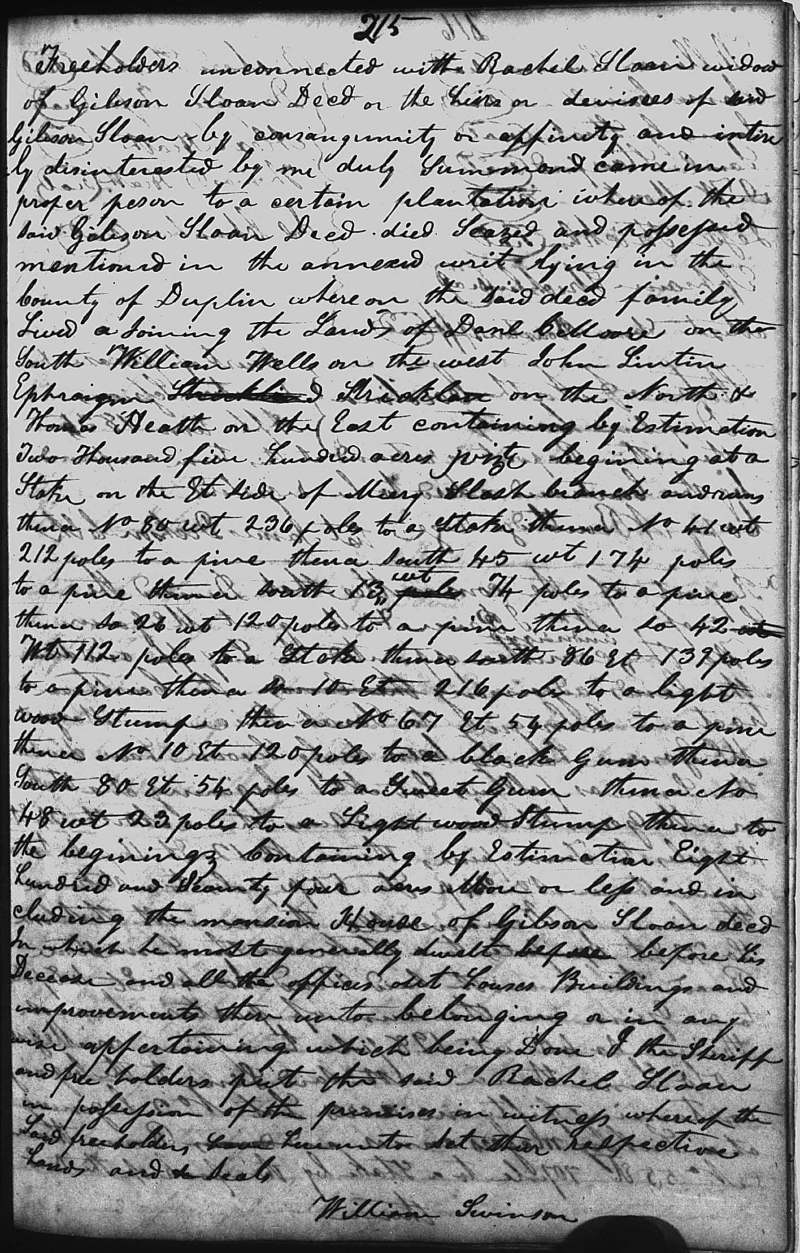 215
Freeholders unconnected with Rachel Sloan widow
of Gibson Sloan Decd or the heirs or devisees of said
Gibson Sloan by consanguinity or affinity and intire
ly disinterested by me duly Summond came in
proper peson to a certain plantation whereof the
said Gibson Sloan Decd died Seazed and possessed
mentioned in the annexed writ lying in the
County of Duplin whereon the said decd family
Lived a Joining the Lands of Danl on the
South William Wells on the west John Lintin
Ephraigm Stricklind Stricklan on the North &
Thomas Heath on the East containing by Estimation
Two Thousand five hundred acres vizt begining at a
Stake on the Et side of Miery Slash branch and runs
thence No 80 wt 236 poles to a Stake thence No 41 wt
212 poles to a pine thence south 45 wt 174 poles
to a pine thence south 13 wt poles 74 poles to a pine
thence so 26 wt 120 poles to a pine thence so 42
Wt 112 poles to a Stake thence south 86 Et 139 poles
to a pine thence so 10 Et 216 poles to a light
wood Stump thence No 67 Et 54 poles to a pine
thence No 10 Et 120 poles to a black Gum thence
South 80 Et 54 poles to a Sweet Gum thence No
48 wt 23 poles to a Light wood Stump thence to
the begining Containing by Estimation Eight
hundred and Seaunty four acres More or less and in
cluding the mansion House of Gibson Sloan decd
In which he most generally dwelt before before his
Decease and all the offices out houses Buildings and
improvements there unto belonging or in any
wise appertaining which being Done I the Sheriff
and free holders put the said Rachel Sloan
in possession of the premises in witness whereof the
Said freeholders have hereunto set their respective
hands and & seals
William Swinson